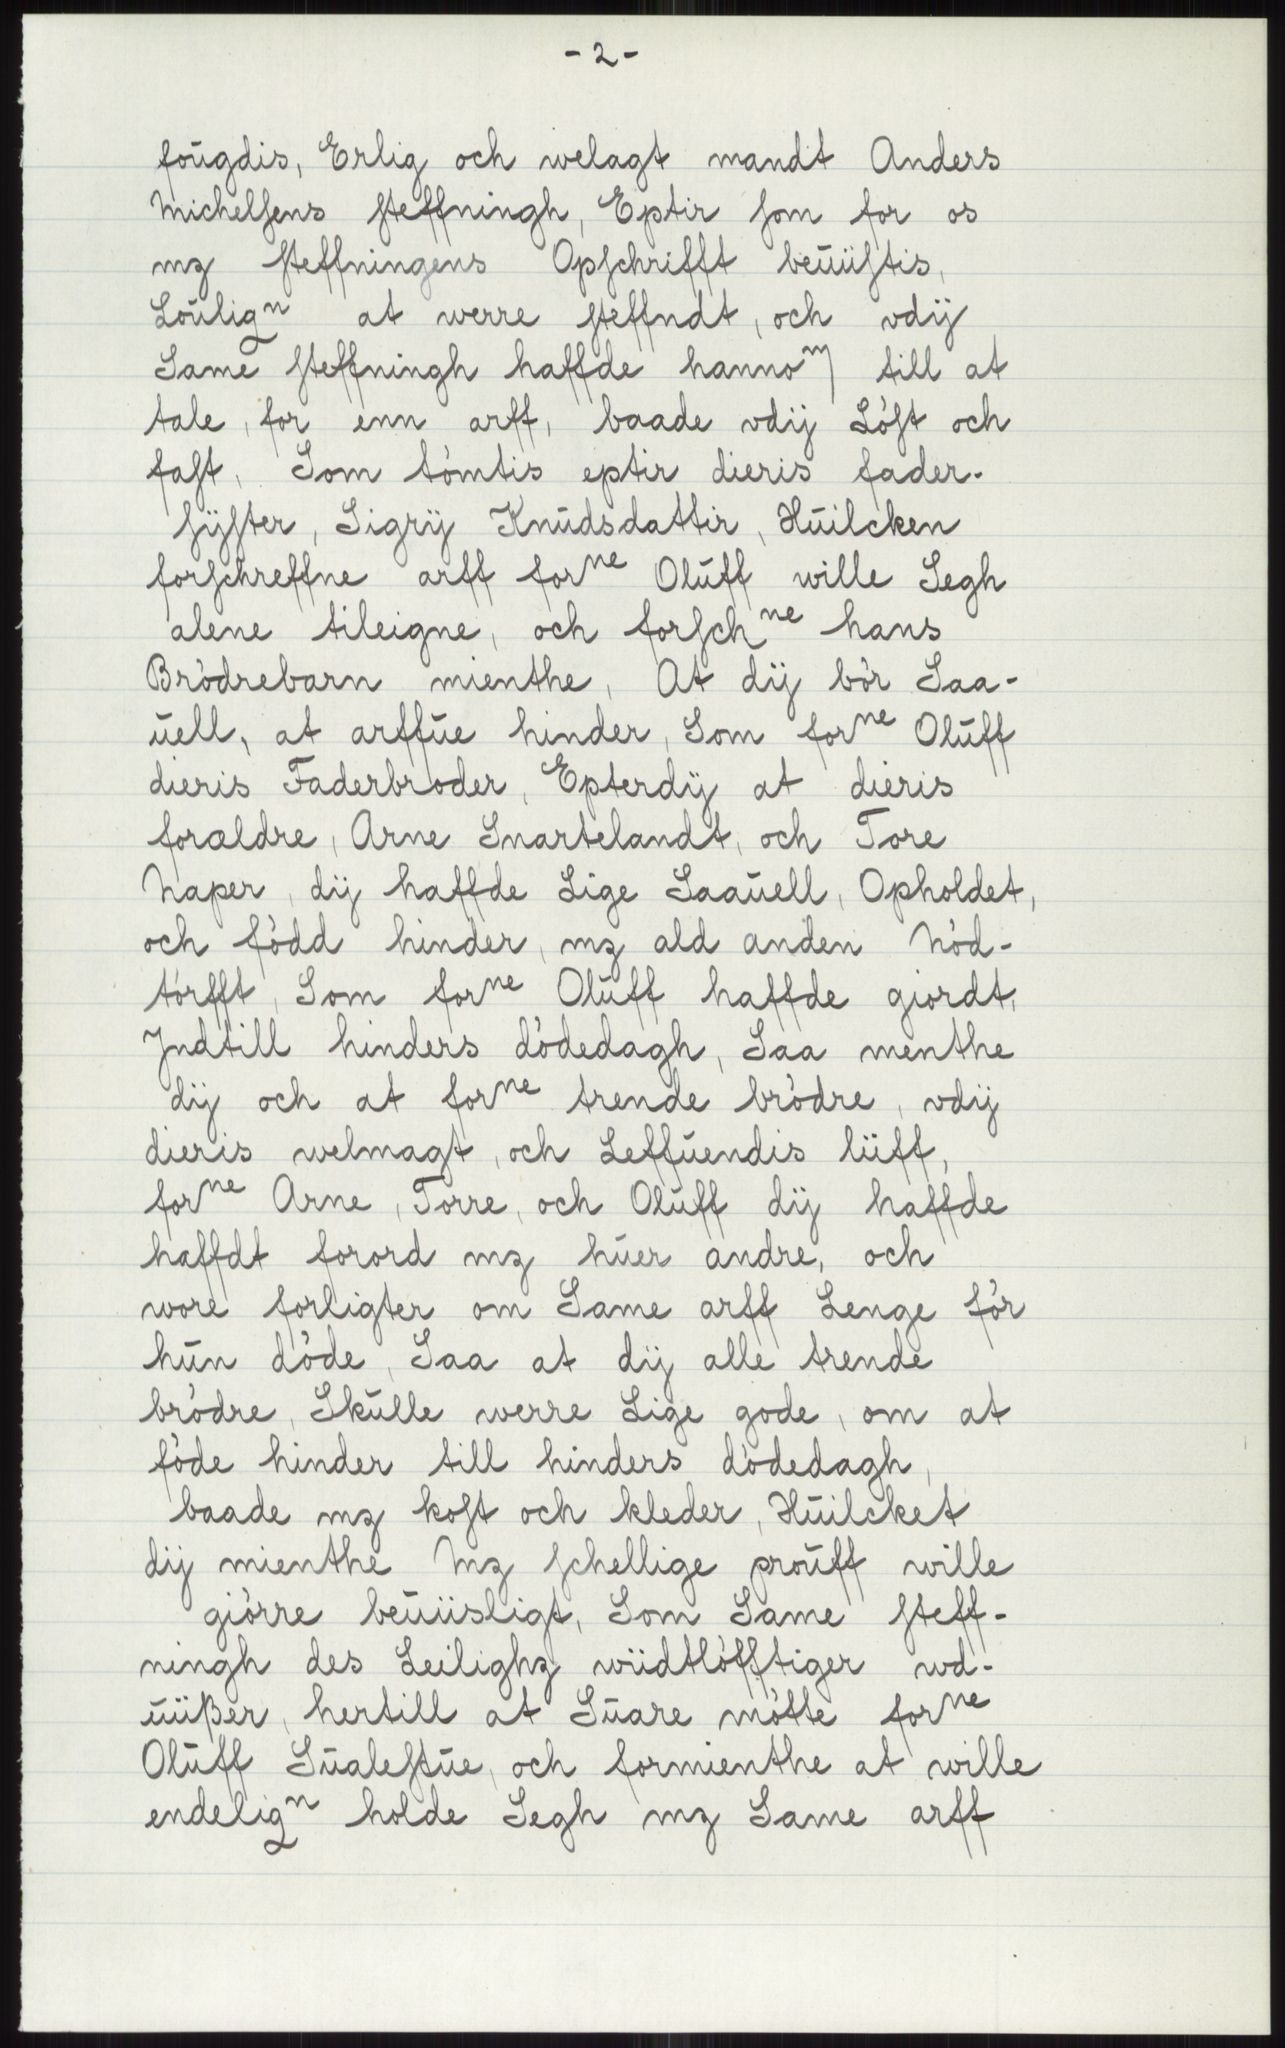 - 2 -
foŭgdis, Erlig och welagt mandt Anders
Michelsens steffningh, Eptir som for os
mz steffningens Opschrifft beŭiistis,
Loŭligⁿ at werre steffndt, och vdij
Same steffningh haffde hannoᵐ till at
tale, for enn arff, baade vdij Löst och
fast, Som tömtis eptir dieris fader-
syster, Sigrij Knŭdsdattir, Hŭilcken
forschreffne arff forⁿᵉ Olŭff wille Segh
alene tileigne, och forschⁿᵉ hans
Brödrebarn mienthe, At dij bör Saa-
ŭell, at arffŭe hinder, Som forⁿᵉ Olŭff
dieris Faderbroder, Epterdij at dieris
forældre, Arne Snartelandt, och Tore
Naper, dij haffde Lige Saaŭell, Opholdet,
och född hinder, mz ald anden Nöd-
törfft, Som forⁿᵉ Olŭff haffde giordt,
Jndtill hinders dödedagh, Saa menthe
dij och at forⁿᵉ trende brödre, vdij
dieris welmagt, och Leffŭendis liiff,
forⁿᵉ Arne, Torre, och Olŭff dij haffde
haffdt forord mz hŭer andre, och
wore forligter om Same arff Lenge för
hŭn döde, Saa at dij alle trende
brödre, Skŭlle werre Lige gode, om at
föde hinder till hinders dödedagh,
baade mz kost och kleder, Hŭilcket
dij mienthe Mz schellige proŭff wille
giörre beŭiisligt, Som Same steff-
ningh des Leilighz wiidtlöfftiger wd-
ŭiißer, hertill at Sŭare mötte forⁿᵉ
Olŭff Sŭalestŭe, och formienthe at wille
endeligⁿ holde Segh mz Same arff